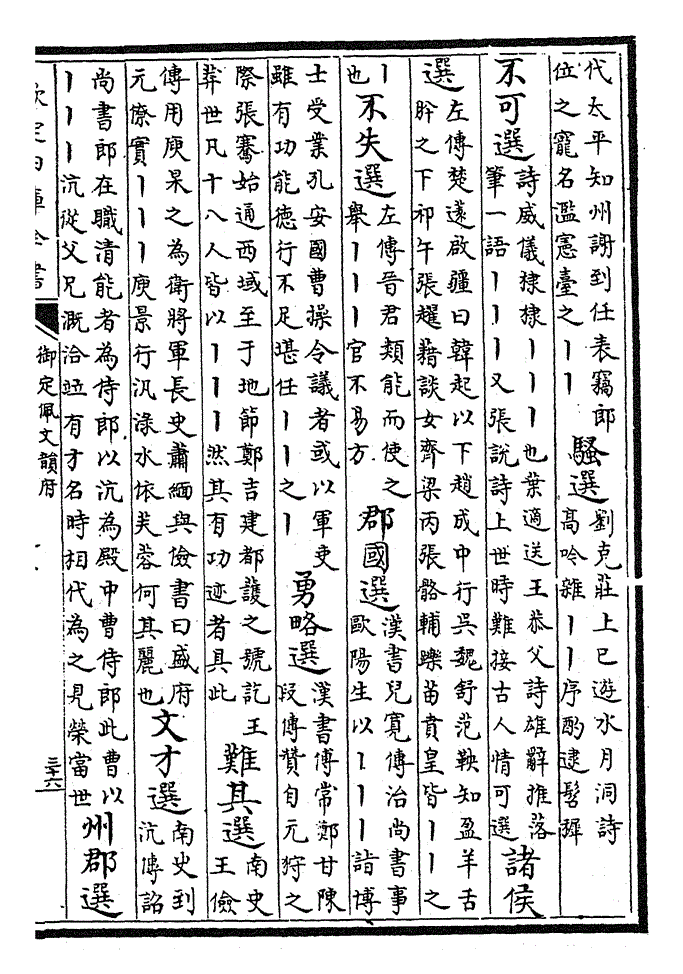 代太平知州謝到任表竊郎
位之寵名濫憲臺之丨丨
騷選
劉克莊上巳遊水月洞詩
高吟雜丨丨序酌逮髫稺
不可選
詩威儀棣棣丨丨丨也葉適送王恭父詩雄辭推落
筆一語丨丨丨又張說詩上世時難接古人情可選
諸侯
選
左傳楚薳啟疆曰韓起以下趙成中行吳魏舒范鞅知盈羊舌
肸之下祁午張趯藉談女齊梁丙張骼輔躒苗賁皇皆丨丨之
丨
也
不失選
左傳晉君類能而使之
舉丨丨丨官不易方
郡國選
漢書兒寬傳治尚書事
歐陽生以丨丨丨詣博
士受業孔安國曹操令議者或以軍吏
雖有功能德行不足堪任丨丨之丨
勇略選
漢書傅常鄭甘陳
段傳贊自元狩之
際張騫始通西域至于地節鄭吉建都護之號訖王
莽世凡十八人皆以丨丨丨然其有功迹者具此
難其選
南史
王儉
傳用庾杲之為衛將軍長史蕭緬與儉書曰盛府
元僚實丨丨丨庾景行汎淥水依芙蓉何其麗也
文才選
南史到
沆傳詔
尚書郎在職清能者為侍郎以沆為殿中曹侍郎此曹以
丨丨丨沆從父兄溉洽竝有才名時相代為之見榮當世
州郡選
欽定四庫全書
御定佩文韻府
三十六